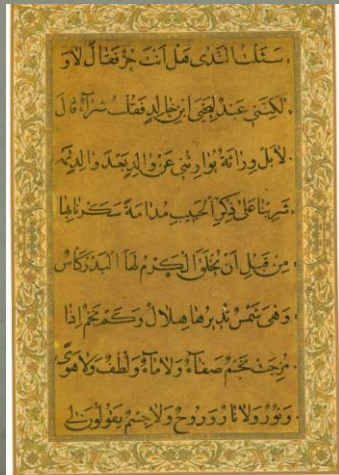 سئلت الندى هل انت حر فقال لا و
لكنني عبد ليحيى ابن خالد فقلت شراء قال
لا بل وراثة توارثني عن والد بعد والد
شربنا على ذكر الحبيب مدامة سكرنا بها
من قبل ان يخلق الكرم لها البدر كاس
وهي شمس يديرها هلال وكم نجم اذا
مزجت نجم صفاء ولا ماء ولطف ولا هوى
ونور ولا نار وروح ولا جسم يقولون لي